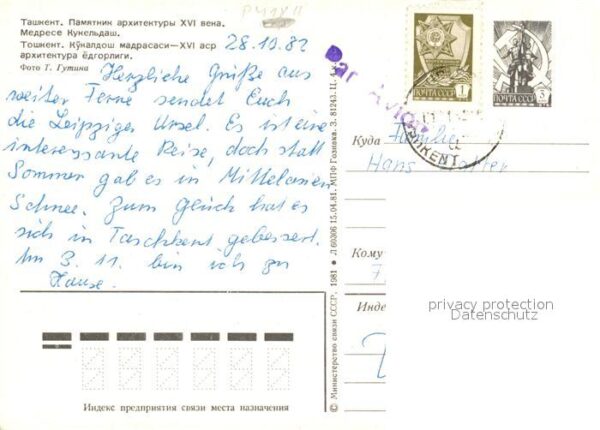 Ташкент. Памятник архитектуры XVI века.
Медресе Кукельдаш.
Тошкент. Кўкалдош мадрасаси—XVI аср
архитектура ёдгорлиги.
Фото Т. Гутина
28.10.82
Herzliche Grüße aus
weiter Ferne sendet Euch
die Leipziger Ursel. Es ist eine
interessante Reise, doch statt
Sommer gab es in Mittelasien
Schnee. Zum Glück hat es
sich in Taschkent gebessert.
Am 3. 11. bin ich zu
Hause.
Индекс предприятия связи места назначения
© Министерство связи СССР, 1981 • Л 60306 15.04.81. МПФ Гознака. З. 81243. Ц. 4 к.
Par Avion
ПОЧТА СССР 1
ПОЧТА СССР 3
Куда Familie
Hans
Кому
Инде
privacy protection
Datenschutz